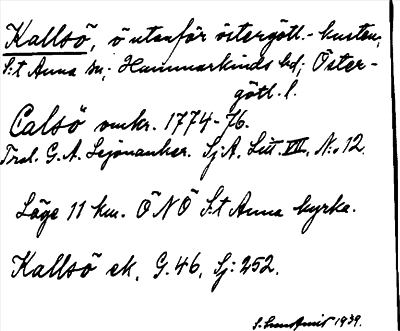 Kallsö, ö utanför östergötl.-kusten;
S:t Anna sn; Hammarkinds hd; Öster-
götl. l.
Calsö omkr. 1774-76.
Trol. G. A. Leijonancker. Sj.A. Litt. VII, N:o 12.
Läge 11 km. ÖNÖ S:t Anna kyrka.
Kallsö ek. G. 46, Sj: 252.
1939.